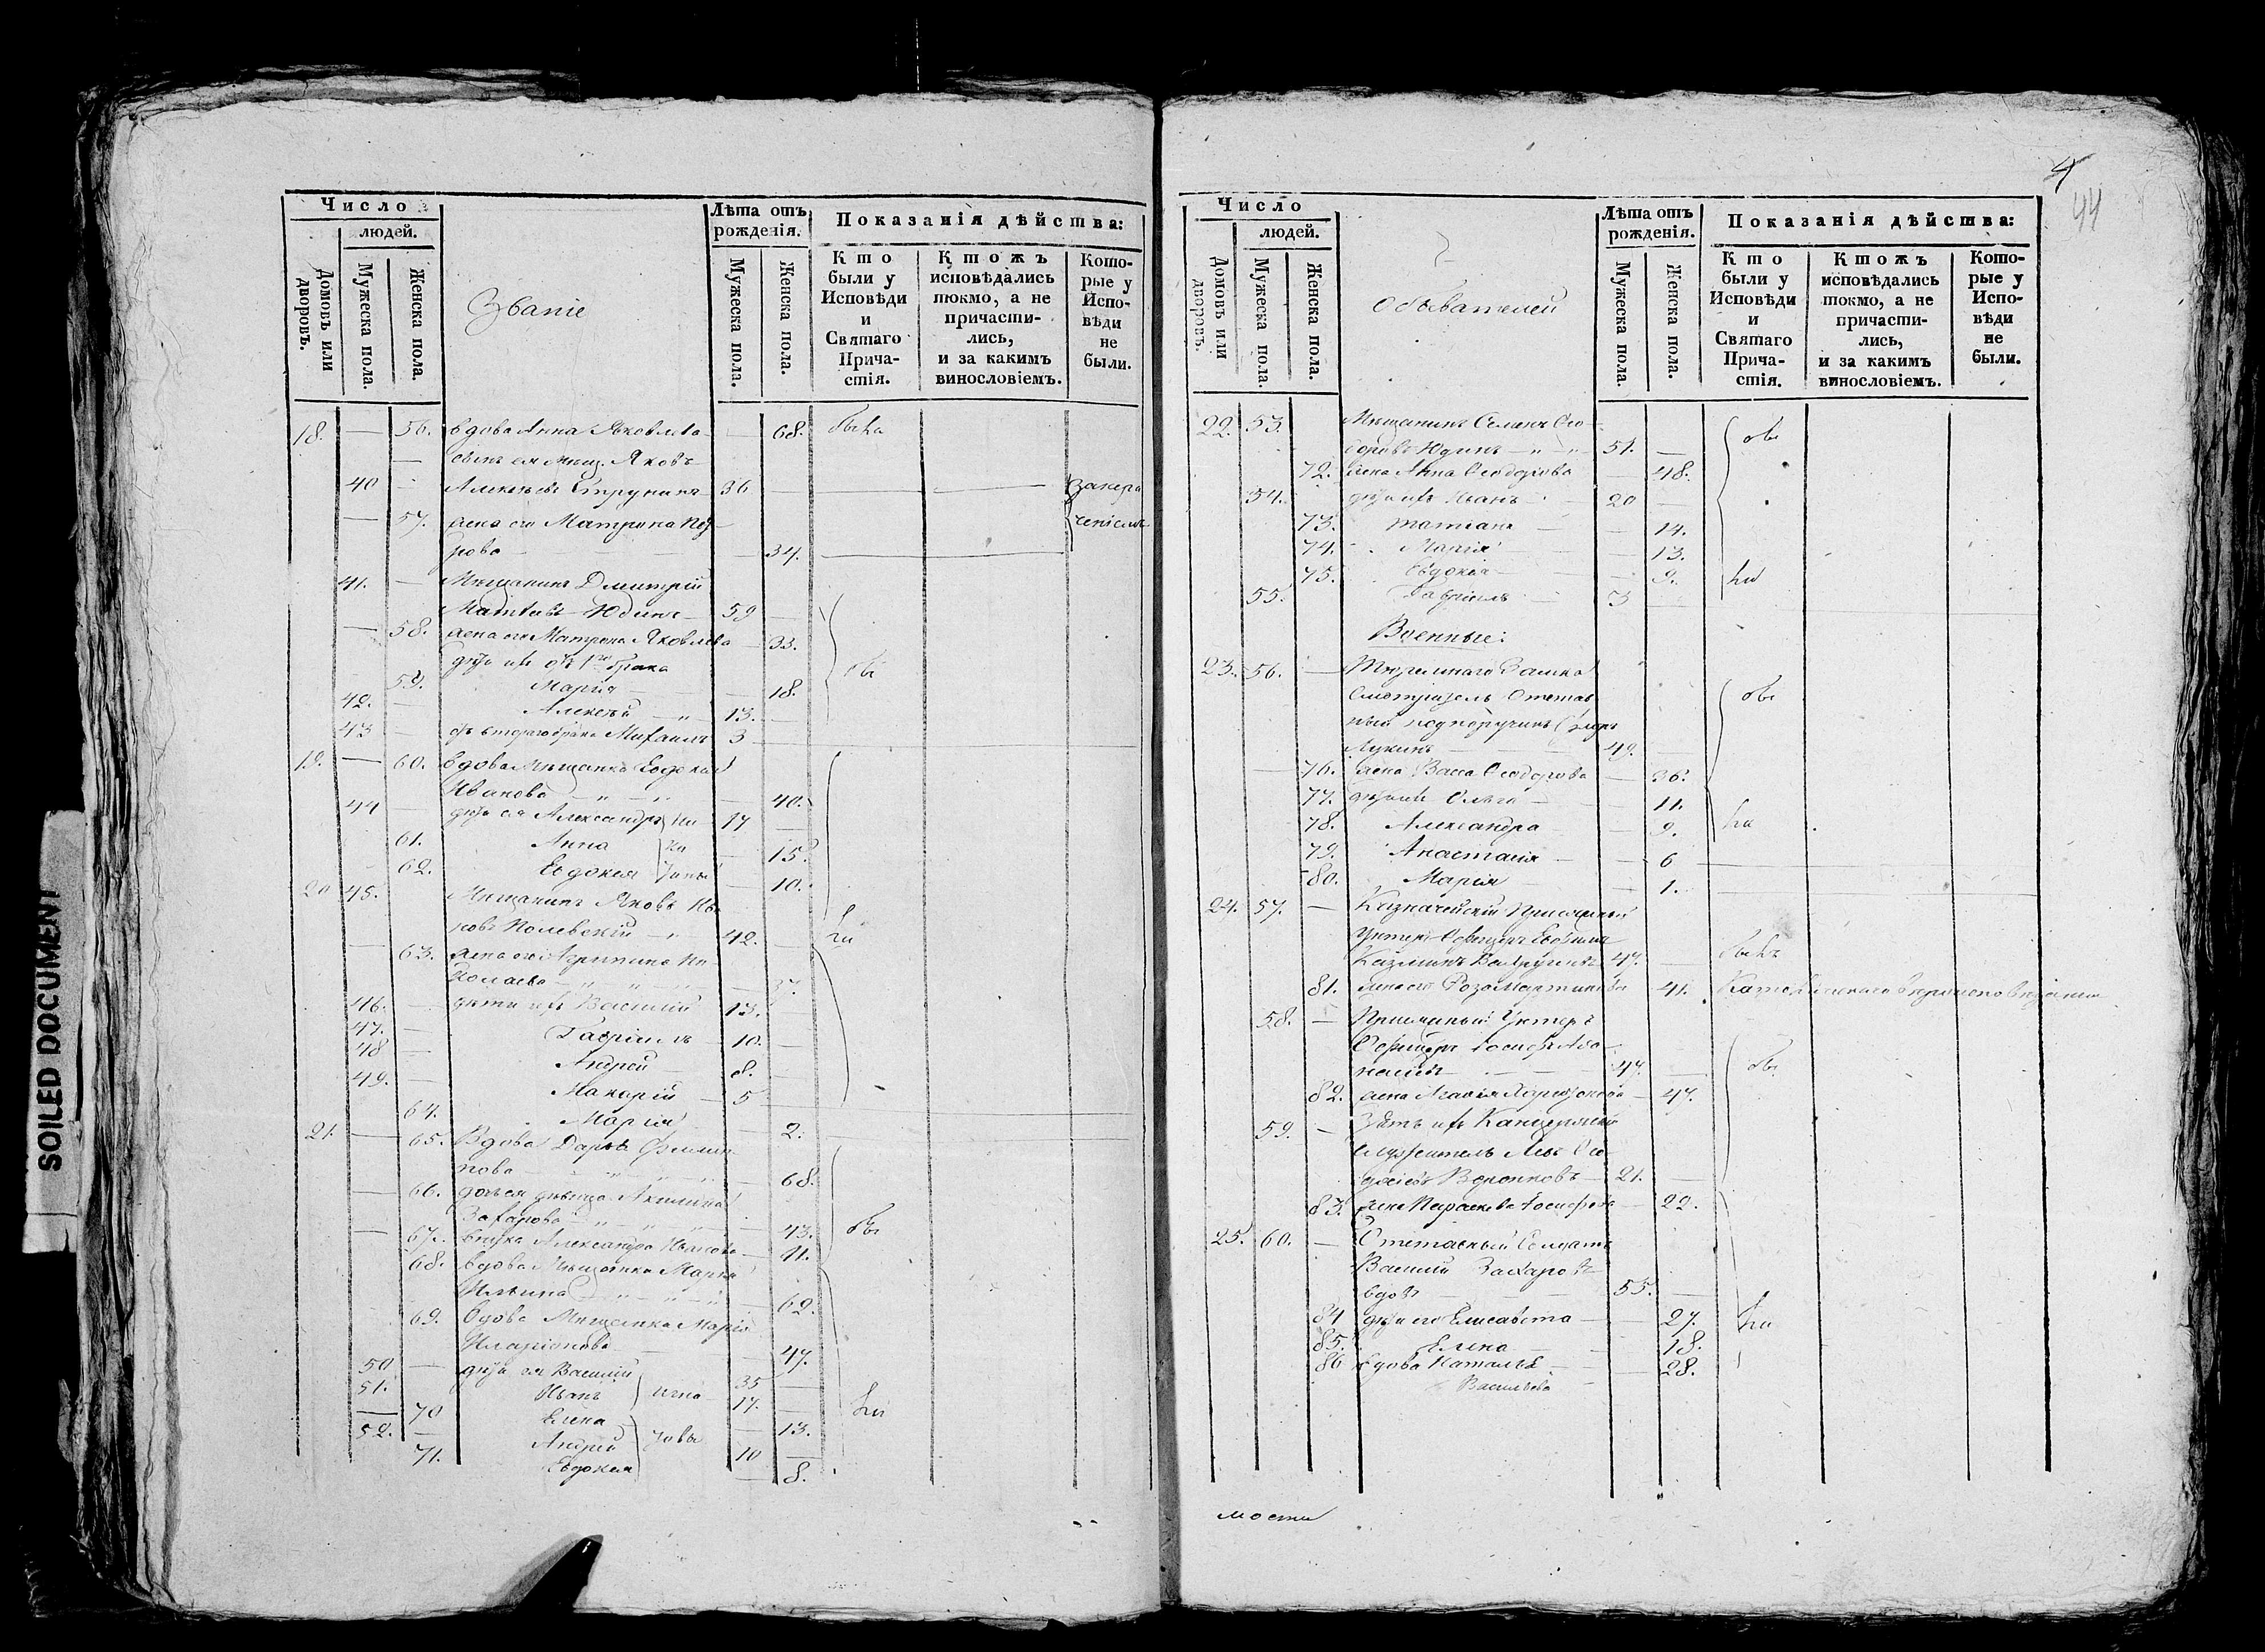 SOILED DOCUMENT
Число
людей.
Домовъ или дворовъ.
Мужеска пола.
Женска пола.
Званіе
Лѣта отъ рожденія.
Мужеска пола.
Женска пола.
Показанія дѣйства:
Кто были у Исповѣди и Святаго Причастія.
Ктожъ исповѣдались токмо, а не причастились, и за какимъ винословіемъ.
Которые у Исповѣди не были.
18. — 56. вдова Анна Яковлева — 68. была
сынъ ея мѣщ. Яковъ
40 Алексѣевъ 36
— 57. жена его Матрона Пет
рова 34.
41. — Мѣщанинъ Димитрій
Матѳѣевъ Юдинъ 59
— 58. жена его Матрона Яковлева 33.
дѣти ихъ отъ 1го брака
59. Марія 18. бы
42. Алексѣй 13.
43 отъ втораго брака Михаилъ 3
19. — 60. вдова мѣщанка Евдокія
Иванова 40.
44 дѣти ея Александръ 17
61. Анна 15.
62. Евдокія 10.
20 45. Мѣщанинъ Яковъ
Полевскій 42. ли
— 63. жена его Агрипина Ни
колаева 37.
46. дѣти ихъ Василій 13.
47. Гавріилъ 10.
48 Андрей 8.
49. Макарій 5
64. Марія 2.
21. — 65. Вдова Дарья Филип
пова 68.
— 66. дочь ея дѣвица Акилина
Захарова 43. бы
— 67. внука Александра Иванова 11.
68. вдова Мѣщанка Марья
Ильина 62.
69. Вдова Мѣщанка Марія
Иларіонова 47.
50 — дѣти ея Василій 35
51. Иванъ 17. ли
70 Елена 13.
52. Андрей 10
71. Евдокія 8.
4
44
Число
людей.
Домовъ или дворовъ.
Мужеска пола.
Женска пола.
Обывателей
Лѣта отъ рожденія.
Мужеска пола.
Женска пола.
Показанія дѣйства:
Кто были у Исповѣди и Святаго Причастія.
Ктожъ исповѣдались токмо, а не причастились, и за какимъ винословіемъ.
Которые у Исповѣди не были.
22. 53. Мѣщанинъ Ѳео
доровъ Юдинъ 51. — бы
72. жена Анна Ѳеодорова 48.
54. дѣти ихъ Иванъ 20
73. Татіана 14.
74. Марія 13.
75. Евдокія 9. ли
55. Гавріилъ 3
Военные:
23. 56. — Тюремнаго Замка
Смотритель Отстав
ный подпоручикъ
Лукинъ 49. бы
— 76. жена Васса Ѳеодорова 36.
77. дѣти ихъ Ольга 11.
78. Александра 9. ли
79. Анастасія 6
80. Марія 1.
24. 57. — Казначейскій Присяжный
Унтеръ Офицеръ Евфимій
Казминъ 47. былъ
81. жена его Роза Мартинова 41. Католическаго вѣроисповѣданія
58. — Присяжный Унтеръ
Офицеръ Іосифъ Аѳа
насьевъ 47. бы
82. жена Агаѳія Харитонова 47.
59. — Зять ихъ Канцелярскій
служитель Левъ Ѳе
досіевъ Воронковъ 21.
83. жена Параскева Іосифова 22.
25. 60. — Отставный Солдатъ
Василій Захаровъ
вдовъ 55.
84 дѣти его Елисавета 27. ли
85. Елена 18.
86 вдова Наталья 28.
Васильева
мости